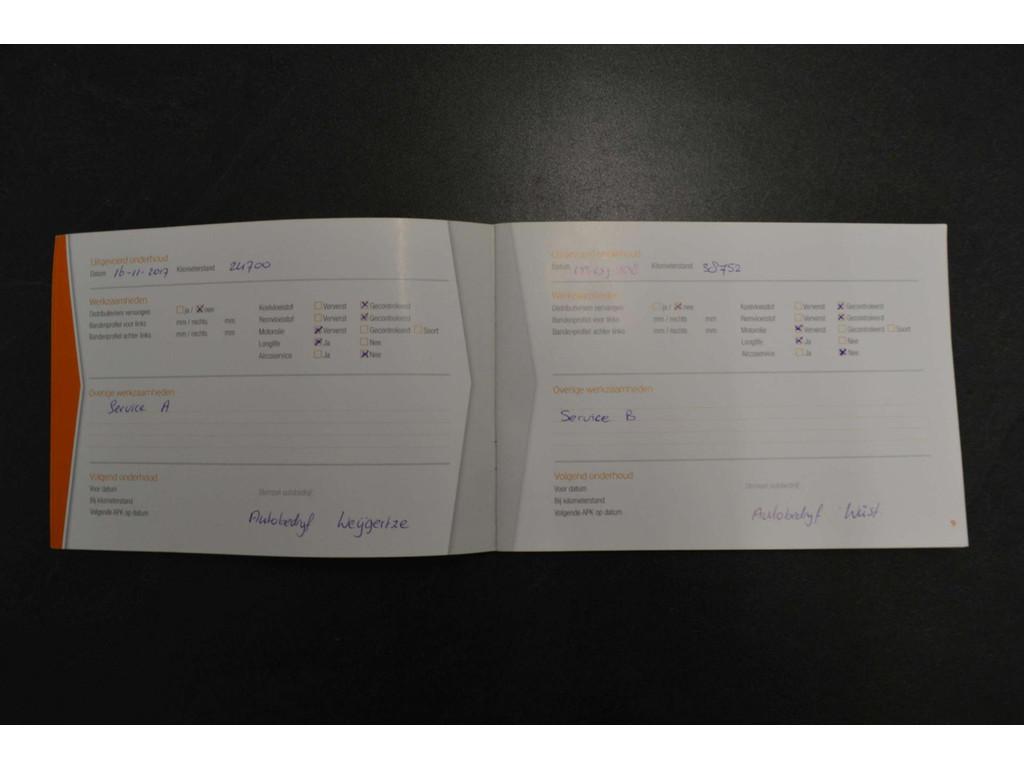 Uitgevoerd onderhoud
Datum 16-11-2017 Kilometerstand 24700
Werkzaamheden
Distributieriem vervangen ja / nee Koelvloeistof Ververst Gecontroleerd
Bandenprofiel voor links mm / rechts mm Remvloeistof Ververst Gecontroleerd
Bandenprofiel achter links mm / rechts mm Motorolie Ververst Gecontroleerd Soort
Longlife Ja Nee
Aircoservice Ja Nee
Overige werkzaamheden
Service A
Volgend onderhoud
Voor datum Stempel autobedrijf
Bij kilometerstand
Volgende APK op datum
Autobedryf
Uitgevoerd onderhoud
Datum Kilometerstand 38752
Werkzaamheden
Distributieriem vervangen ja / nee Koelvloeistof Ververst Gecontroleerd
Bandenprofiel voor links mm / rechts mm Remvloeistof Ververst Gecontroleerd
Bandenprofiel achter links mm / rechts mm Motorolie Ververst Gecontroleerd Soort
Longlife Ja Nee
Aircoservice Ja Nee
Overige werkzaamheden
Service B
Volgend onderhoud
Voor datum Stempel autobedrijf
Bij kilometerstand
Volgende APK op datum
Autobedryf Wüst
9